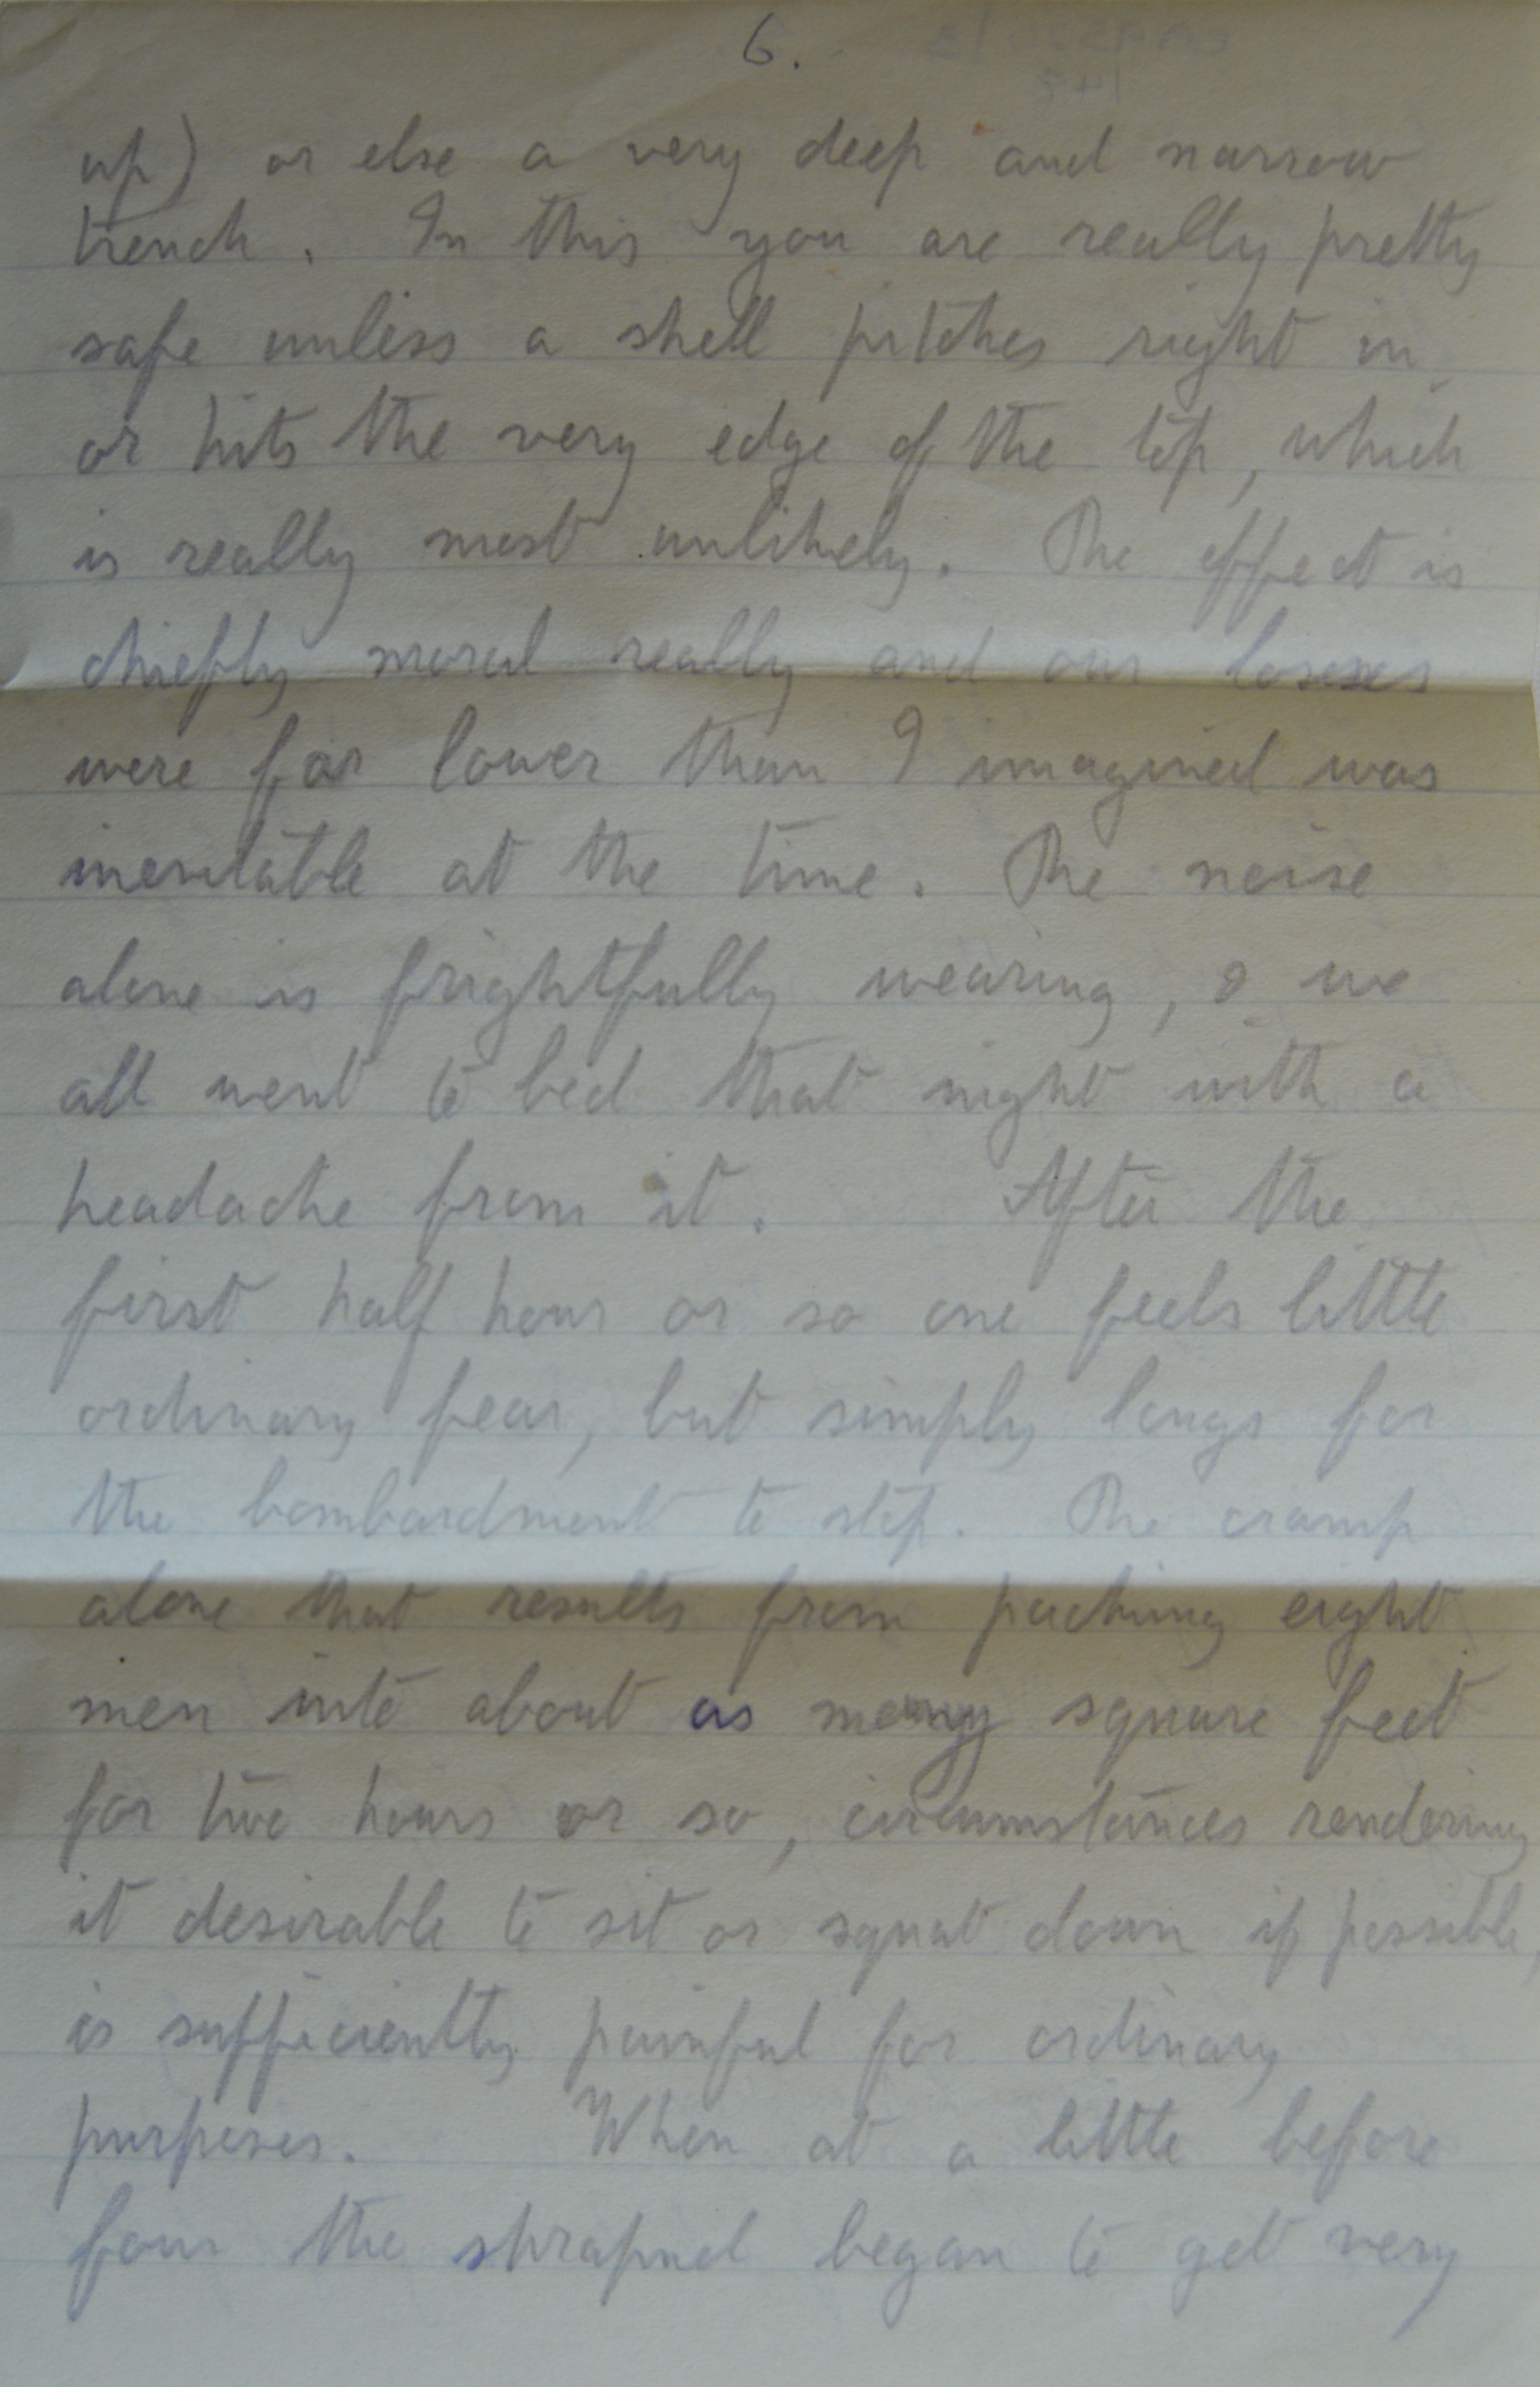 6.
up) or else a very deep and narrow
trench. In this you are really pretty
safe unless a shell pitches right in
or hits the very edge of the top, which
is really most unlikely. The effect is
chiefly moral really and our losses
were far lower than I imagined was
inevitable at the time. The noise
alone is frightfully wearing, & we
all went to bed that night with a
headache from it. After the
first half hour or so one feels little
ordinary fear, but simply longs for
the bombardment to stop. The cramp
alone that results from packing eight
men into about as many square feet
for two hours or so, circumstances rendering
it desirable to sit or squat down if possible,
is sufficiently painful for ordinary
purposes. When at a little before
four the shrapnel began to get very